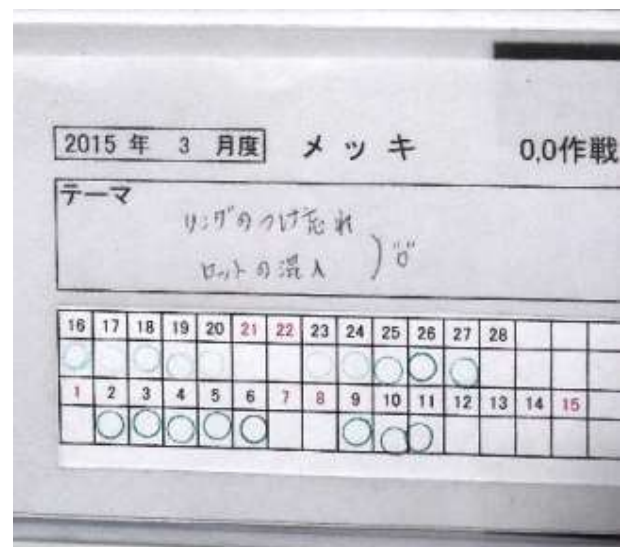 2015 年 3 月度 メッキ 0,0作戦
テーマ
リングのつけ忘れ
ロットの混入 ) "0"
16 17 18 19 20 21 22 23 24 25 26 27 28
1 2 3 4 5 6 7 8 9 10 11 12 13 14 15